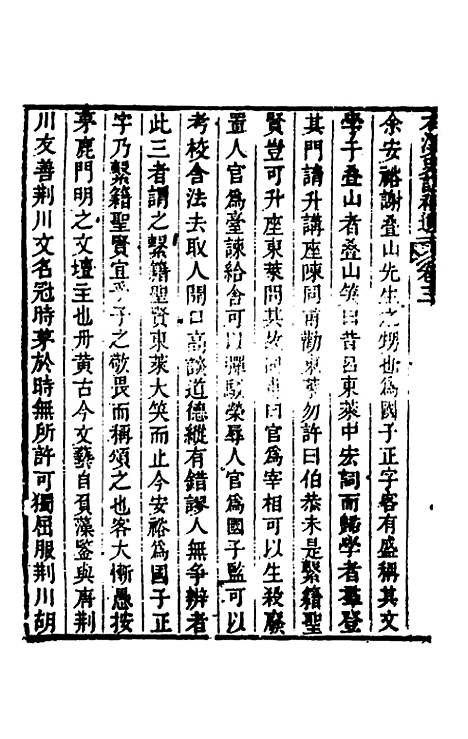 余安裕謝叠山先生之甥也為國子正字客有盛稱其文
學于叠山者叠山笑曰昔呂東萊中宏詞而歸學者羣登
其門請升講座陳同甫勸東萊勿許曰伯恭未是繫籍聖
賢豈可升座東萊問其故同甫曰官為宰相可以生殺廢
置人官為臺諫給舍可以彈駁榮辱人官為國子監可以
考校舍法去取人開口高談道德縱有錯謬人無争辨者
此三者謂之繫籍聖賢東萊大笑而止今安裕為國子正
字乃繫籍聖賢宜乎子之敬畏而稱頌之也客大慚愚按
茅鹿門明之文壇主也丹黄古今文藝自負藻鑒與唐荆
川友善荆川文名冠時茅於時無所許可獨屈服荆川胡